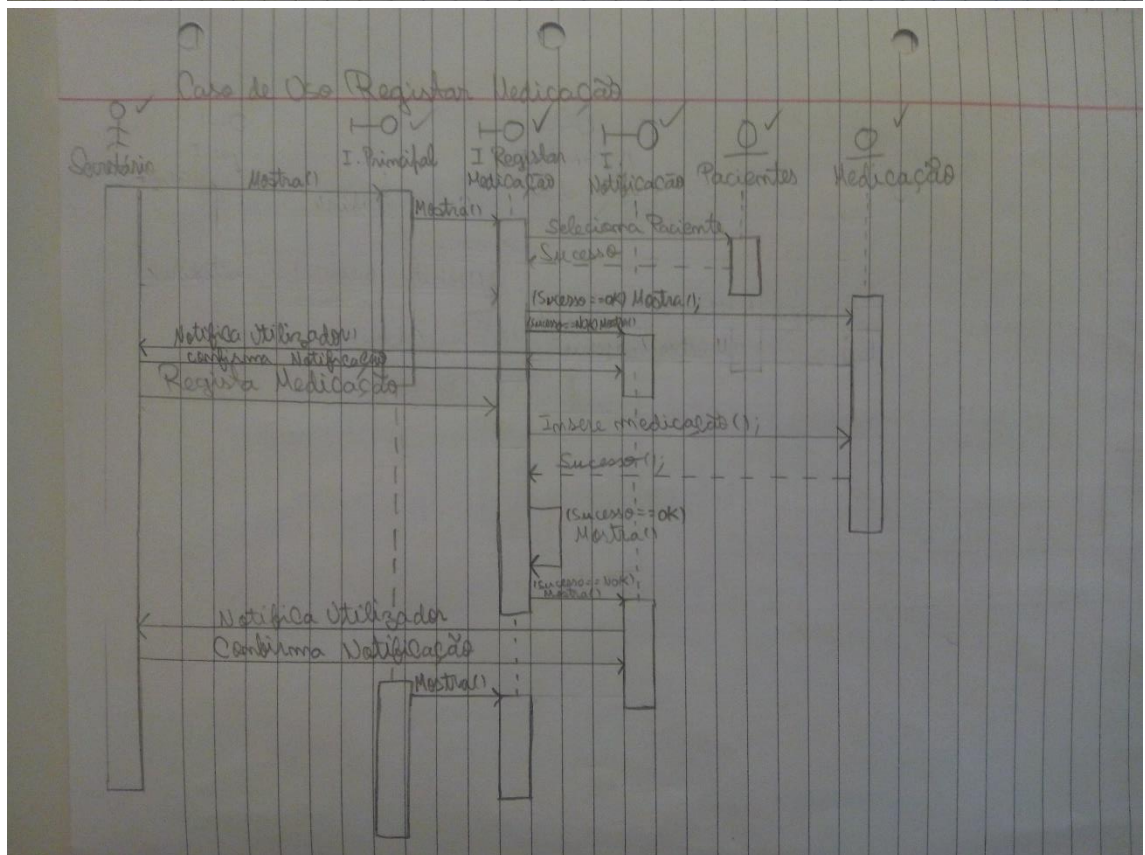 Caso de Uso Registar Medicação
Secretário
I. Principal
I Registar
Medicação
I.
Notificação
Pacientes
Medicação
Mostra()
Mostra()
Seleciona Paciente
Sucesso
(Sucesso==ok) Mostra();
(Sucesso==Nok) Mostra()
Notifica Utilizador
Confirma Notificação
Regista Medicação
Insere medicação();
Sucesso();
(Sucesso==ok)
Mostra()
(Sucesso==Nok)
Mostra()
Notifica Utilizador
Confirma Notificação
Mostra()